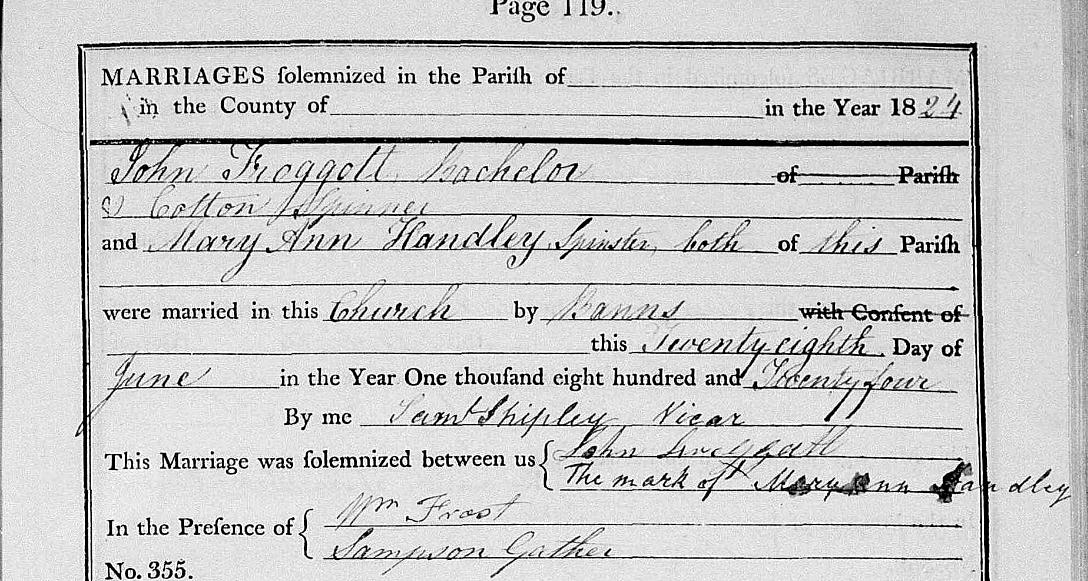 Page 119.
MARRIAGES ſolemnized in the Pariſh of
in the County of in the Year 1824
John Froggott Bachelor of Pariſh
Cotton Spinner
and Mary Ann Handley Spinster, both of this Pariſh
were married in this Church by Banns with Conſent of
this Twenty eighth Day of
June in the Year One thouſand eight hundred and Twenty four
By me Saml Shipley Vicar
This Marriage was ſolemnized between us { John
The mark of Mary Ann Handley
In the Preſence of { Wm Frost
Sampson Gather
No. 355.